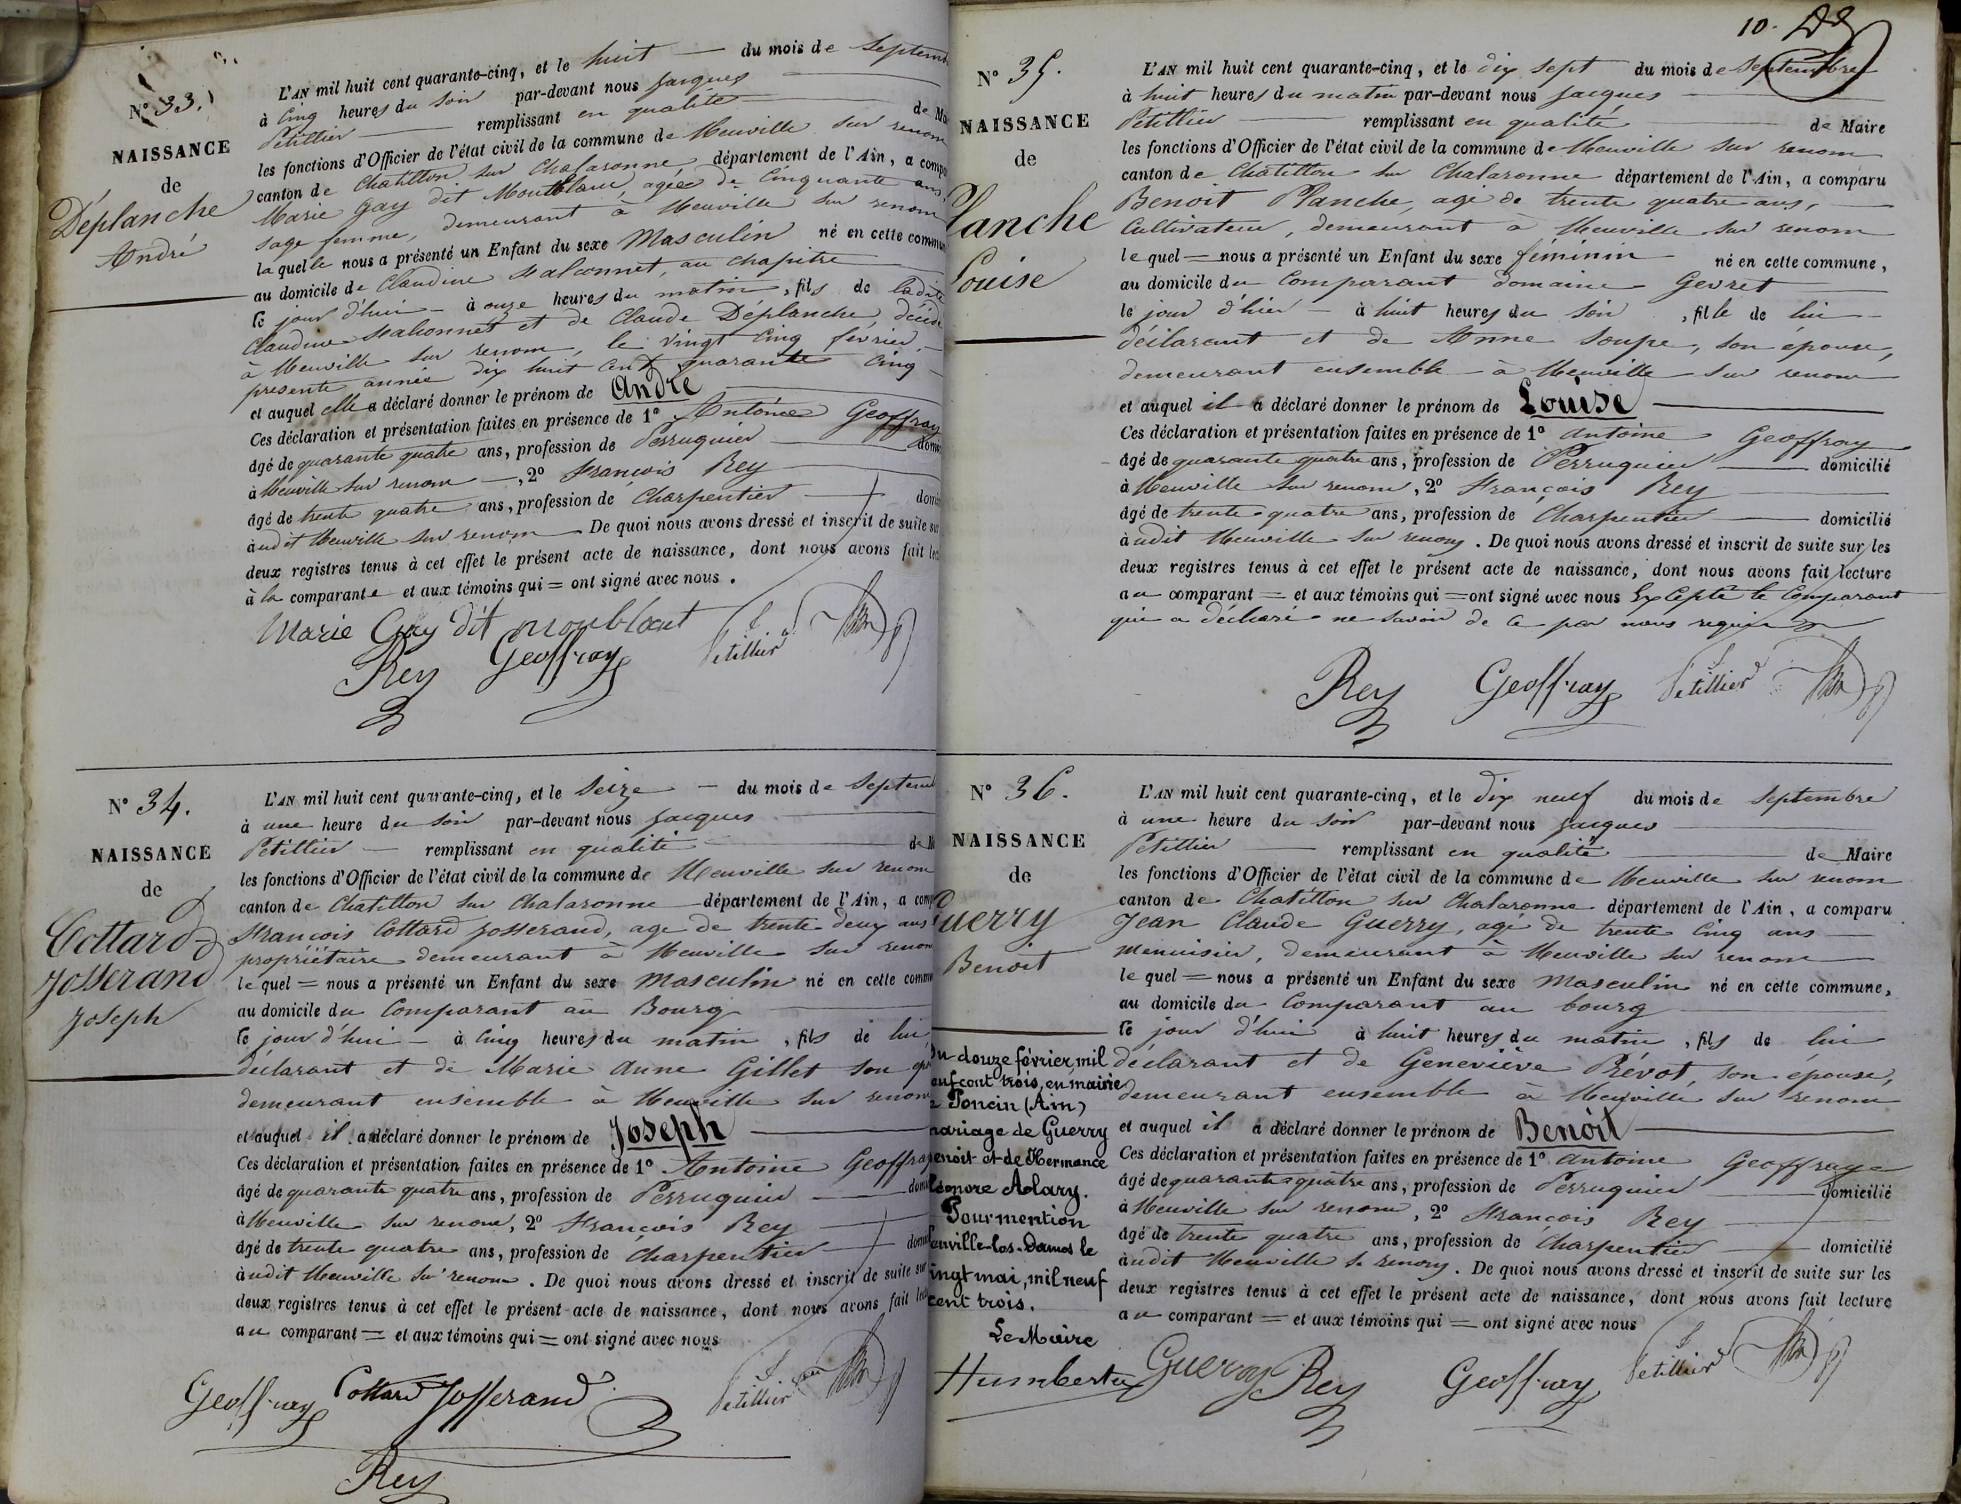 N° 33.
NAISSANCE
de
Déplanche
André
L'AN mil huit cent quarante-cinq, et le huit du mois de Septem
à cinq heures du soir par-devant nous Jacques
Petillier remplissant en qualité de Ma
les fonctions d'Officier de l'état civil de la commune de Neuville sur renom
canton de Chatillon sur Chalaronne département de l'Ain, a comp
Marie Gay dit Montblanc, agée de Cinquante ans,
sage femme, demeurant à Neuville sur renom
laquelle nous a présenté un Enfant du sexe Masculin né en cette commun
au domicile de Claudine au chapitre
le jour d'hui à onze heures du matin, fils de ladite
Claudine et de Claude Déplanche, décédé
à Neuville sur renom, le vingt cinq février
presente année dix huit cent quarante cinq
et auquel elle a déclaré donner le prénom de André
Ces déclaration et présentation faites en présence de 1° Antoine Geoffray
âgé de quarante quatre ans, profession de Perruquier domi
à Neuville sur renom, 2° François Rey
âgé de trente quatre ans, profession de Charpentier domi
àudit Neuville sur renom De quoi nous avons dressé et inscrit de suite su
deux registres tenus à cet effet le présent acte de naissance, dont nous avons fait lec
à la comparante et aux témoins qui = ont signé avec nous.
Marie Gay dit monblant
Rey Geoffray Petillier
N° 34.
NAISSANCE
de
Cottard
Josserand
Joseph
L'AN mil huit cent quarante-cinq, et le Seize du mois de Septem
à une heure du soir par-devant nous Jacques
Petillier remplissant en qualité de M
les fonctions d'Officier de l'état civil de la commune de Neuville sur renom
canton de Chatillon sur Chalaronne département de l'Ain, a comp
François Cottard Josserand, age de trente deux ans
propriétaire demeurant à Neuville sur renom
lequel = nous a présenté un Enfant du sexe Masculin né en cette commu
au domicile du Comparant au Bourg
le jour d'hui à cinq heures du matin, fils de lui
déclarant et de Marie Anne Gillet son ép
demeurant ensemble à Neuville sur renom
et auquel il a déclaré donner le prénom de Joseph
Ces déclaration et présentation faites en présence de 1° Antoine Geoffray
âgé de quarante quatre ans, profession de Perruquier domi
à Neuville sur renom, 2° François Rey
âgé de trente quatre ans, profession de Charpentier domi
àudit Neuville sur renom. De quoi nous avons dressé et inscrit de suite sur
deux registres tenus à cet effet le présent acte de naissance, dont nous avons fait lec
au comparant = et aux témoins qui = ont signé avec nous
Geoffray Cottard Josserand Petillier
Rey
10.
N° 35.
NAISSANCE
de
lanche
Louise
L'AN mil huit cent quarante-cinq, et le dix sept du mois de Septembre
à huit heures du matin par-devant nous Jacques
Petillier remplissant en qualité de Maire
les fonctions d'Officier de l'état civil de la commune de Neuville sur renom
canton de Chatillon sur Chalaronne département de l'Ain, a comparu
Benoit Planche, agé de trente quatre ans,
Cultivateur, demeurant à Neuville sur renom
lequel = nous a présenté un Enfant du sexe féminin né en cette commune,
au domicile du Comparant domaine Gevret
le jour d'hier à huit heures du soir, fille de lui
déclarant et de Anne Soupe, son épouse,
demeurant ensemble à Neuville sur renom
et auquel il a déclaré donner le prénom de Louise
Ces déclaration et présentation faites en présence de 1° Antoine Geoffray
âgé de quarante quatre ans, profession de Perruquier domicilié
à Neuville sur renom, 2° François Rey
âgé de trente quatre ans, profession de Charpentier domicilié
àudit Neuville sur renom. De quoi nous avons dressé et inscrit de suite sur les
deux registres tenus à cet effet le présent acte de naissance, dont nous avons fait lecture
au comparant = et aux témoins qui = ont signé avec nous Excepté le Comparant
qui a déclaré ne savoir de ce par nous requis
Rey Geoffray Petillier
N° 36.
NAISSANCE
de
uerry
Benoit
L'AN mil huit cent quarante-cinq, et le dix neuf du mois de Septembre
à une heure du soir par-devant nous Jacques
Petillier remplissant en qualité de Maire
les fonctions d'Officier de l'état civil de la commune de Neuville sur renom
canton de Chatillon sur Chalaronne département de l'Ain, a comparu
Jean Claude Guerry, agé de trente cinq ans
menuisier, demeurant à Neuville sur renom
lequel = nous a présenté un Enfant du sexe Masculin né en cette commune,
au domicile du Comparant au bourg
le jour d'hui à huit heures du matin, fils de lui
déclarant et de Geneviève Prévot, son épouse,
demeurant ensemble à Neuville sur renom
et auquel il a déclaré donner le prénom de Benoit
Ces déclaration et présentation faites en présence de 1° Antoine Geoffray
âgé de quarante quatre ans, profession de Perruquier domicilié
à Neuville sur renom, 2° François Rey
âgé de trente quatre ans, profession de Charpentier domicilié
àudit Neuville s. renom. De quoi nous avons dressé et inscrit de suite sur les
deux registres tenus à cet effet le présent acte de naissance, dont nous avons fait lecture
au comparant = et aux témoins qui = ont signé avec nous
Guerry Rey Geoffray Petillier
Du douze février, mil
euf cent trois, en mairie
e Poncin (Ain)
mariage de Guerry
enoit et de Hermance
Léonore Alary.
Pour mention
euville-les-Dames le
ingt mai, mil neuf
cent trois.
Le Maire
Humbert